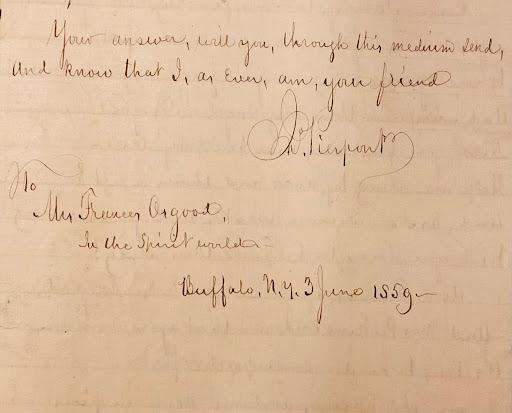 Your answer, will you, through this medium send,
And know that I, as Ever, am, your friend
Jno. Pierpont
To
Mrs Frances Osgood,
In the Spirit world –
Buffalo, N.Y. 3 June 1859 –